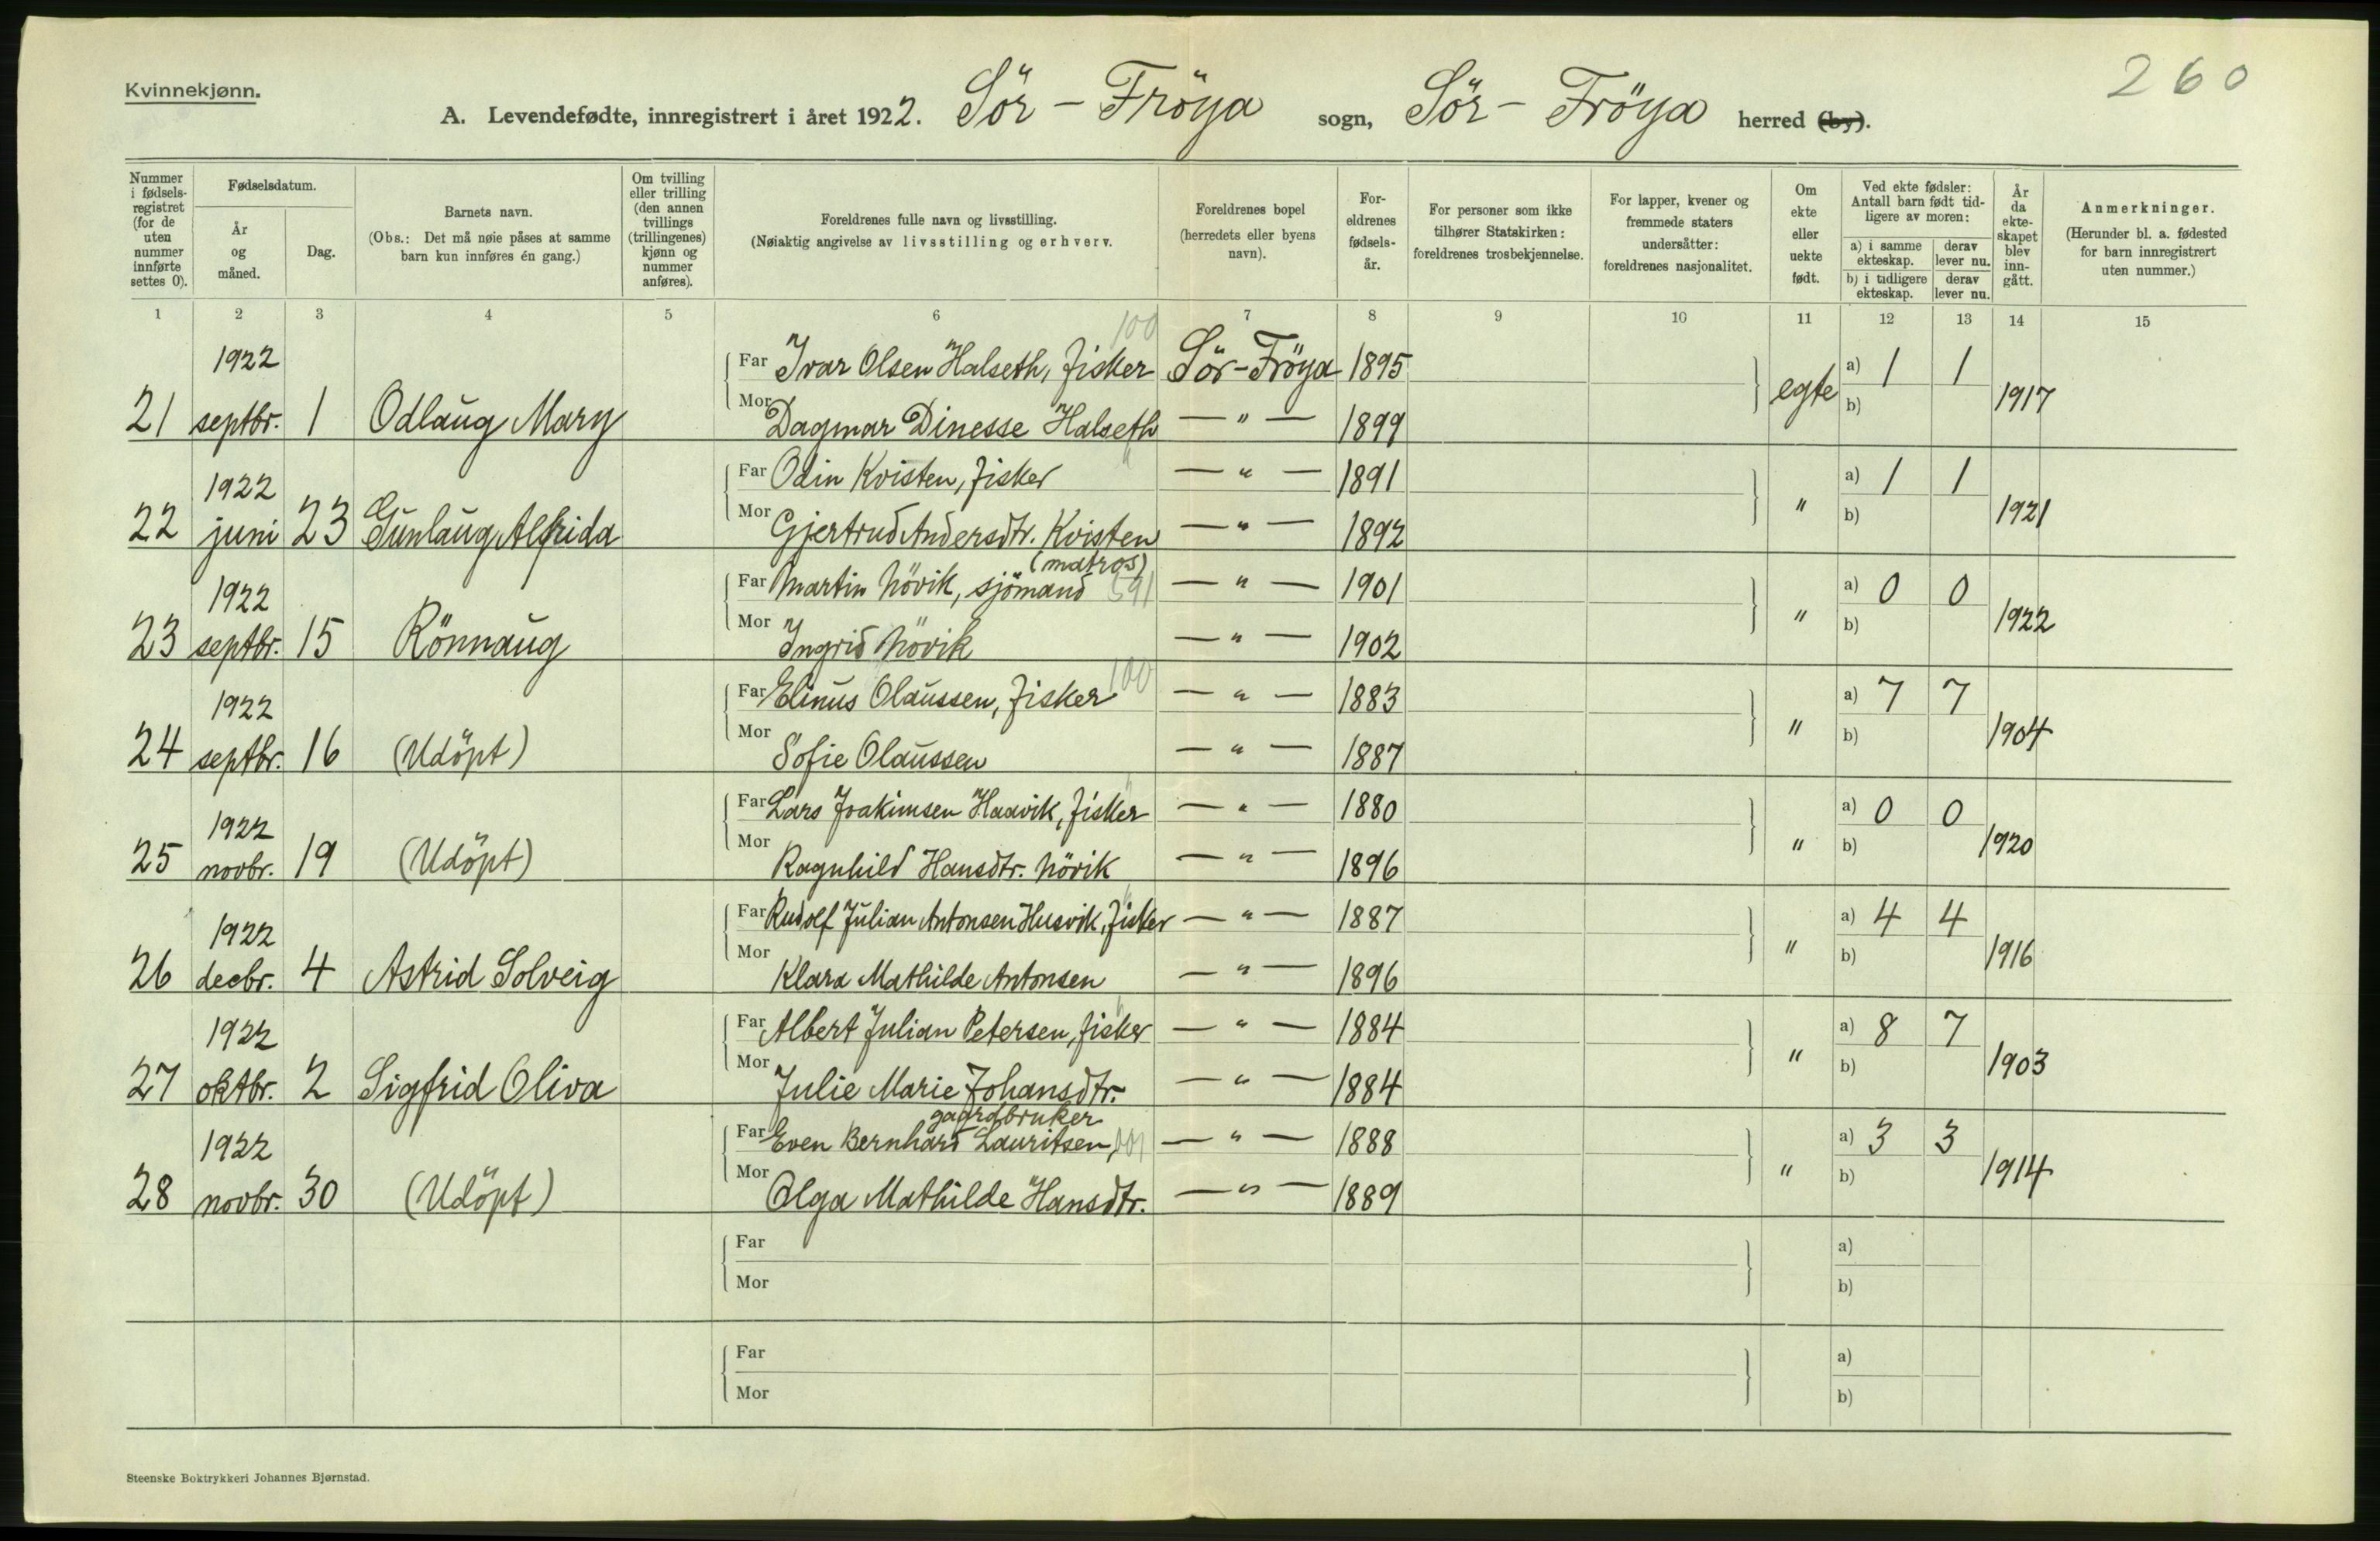 Kvinnekjønn.
260
A. Levendefødte, innregistrert i året 1922. Sör - Fröya sogn, Sör - Fröya herred (by).
Nummer i fødsels-registret (for de uten nummer innførte settes 0).
Fødselsdatum.
År og måned.
Dag.
Barnets navn.
(Obs.: Det må nøie påses at samme barn kun innføres én gang.)
Om tvilling eller trilling (den annen tvillings (trillingenes) kjønn og nummer anføres).
Foreldrenes fulle navn og livsstilling.
(Nøiaktig angivelse av livsstilling og erhverv.
Foreldrenes bopel (herredets eller byens navn).
For-eldrenes fødsels-år.
For personer som ikke tilhører Statskirken: foreldrenes trosbekjennelse.
For lapper, kvener og fremmede staters undersåtter: foreldrenes nasjonalitet.
Om ekte eller uekte født.
Ved ekte fødsler: Antall barn født tid-ligere av moren:
a) i samme ekteskap. derav lever nu.
b) i tidligere ekteskap. derav lever nu.
År da ekte-skapet blev inn-gått.
Anmerkninger.
(Herunder bl. a. fødested for barn innregistrert uten nummer.)
1 2 3 4 5 6 7 8 9 10 11 12 13 14 15
21 1922 septbr. 1 Odlaug Mary Far Ivar Olsen Halseth, fisker 100 Sör-Fröya 1895 egte a) 1 1 1917
Mor Dagmar Dinesse Halseth — " — 1899 b)
22 1922 juni 23 Gunlaug Alfrida Far Odin Kvisten, fisker " — " — 1891 " a) 1 1 1921
Mor Gjertrud Andersdtr. Kvisten — " — 1892 b)
23 1922 septbr. 15 Rönnaug Far Martin Növik, sjömand (matros) 591 — " — 1901 " a) 0 0 1922
Mor Ingrid Növik — " — 1902 b)
24 1922 septbr. 16 (Udöpt) Far Elinus Olaussen, fisker 100 — " — 1883 " a) 7 7 1904
Mor Sofie Olaussen — " — 1887 b)
25 1922 novbr. 19 (Udöpt) Far Lars Joakimsen Haavik, fisker — " — 1880 " a) 0 0 1920
Mor Ragnhild Hansdtr. Növik — " — 1896 b)
26 1922 decbr. 4 Astrid Solveig Far Rudolf Julian Antonsen Husvik, fisker — " — 1887 " a) 4 4 1916
Mor Klara Mathilde Antonsen — " — 1896 b)
27 1922 oktbr. 2 Sigfrid Oliva Far Albert Julian Petersen, fisker — " — 1884 " a) 8 7 1903
Mor Julie Marie Johansdtr. — " — 1884 b)
28 1922 novbr. 30 (Udöpt) Far Even Bernhard Lauritsen, gaardbruker — " — 1888 " a) 3 3 1914
Mor Olga Mathilde Hansdtr. — " — 1889 b)
Far a)
Mor b)
Far a)
Mor b)
Steenske Boktrykkeri Johannes Bjørnstad.